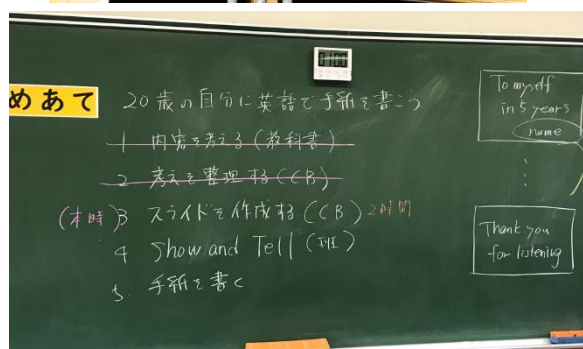 めあて 20歳の自分に英語で手紙を書こう
1 内容を考える(教科書)
2 考えを整理する(CB)
(本時)3 スライドを作成する(CB)2時間
4 Show and Tell(班)
5. 手紙を書く
To myself
in 5 years
name
Thank you
for listening